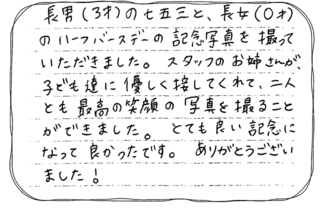 長男(3才)の七五三と、長女(0才)
のハーフバースデーの記念写真を撮って
いただきました。スタッフのお姉さんが、
子ども達に優しく接してくれて、二人
とも最高の笑顔の写真を撮ること
ができました。とても良い記念に
なって良かったです。ありがとうござい
ました!